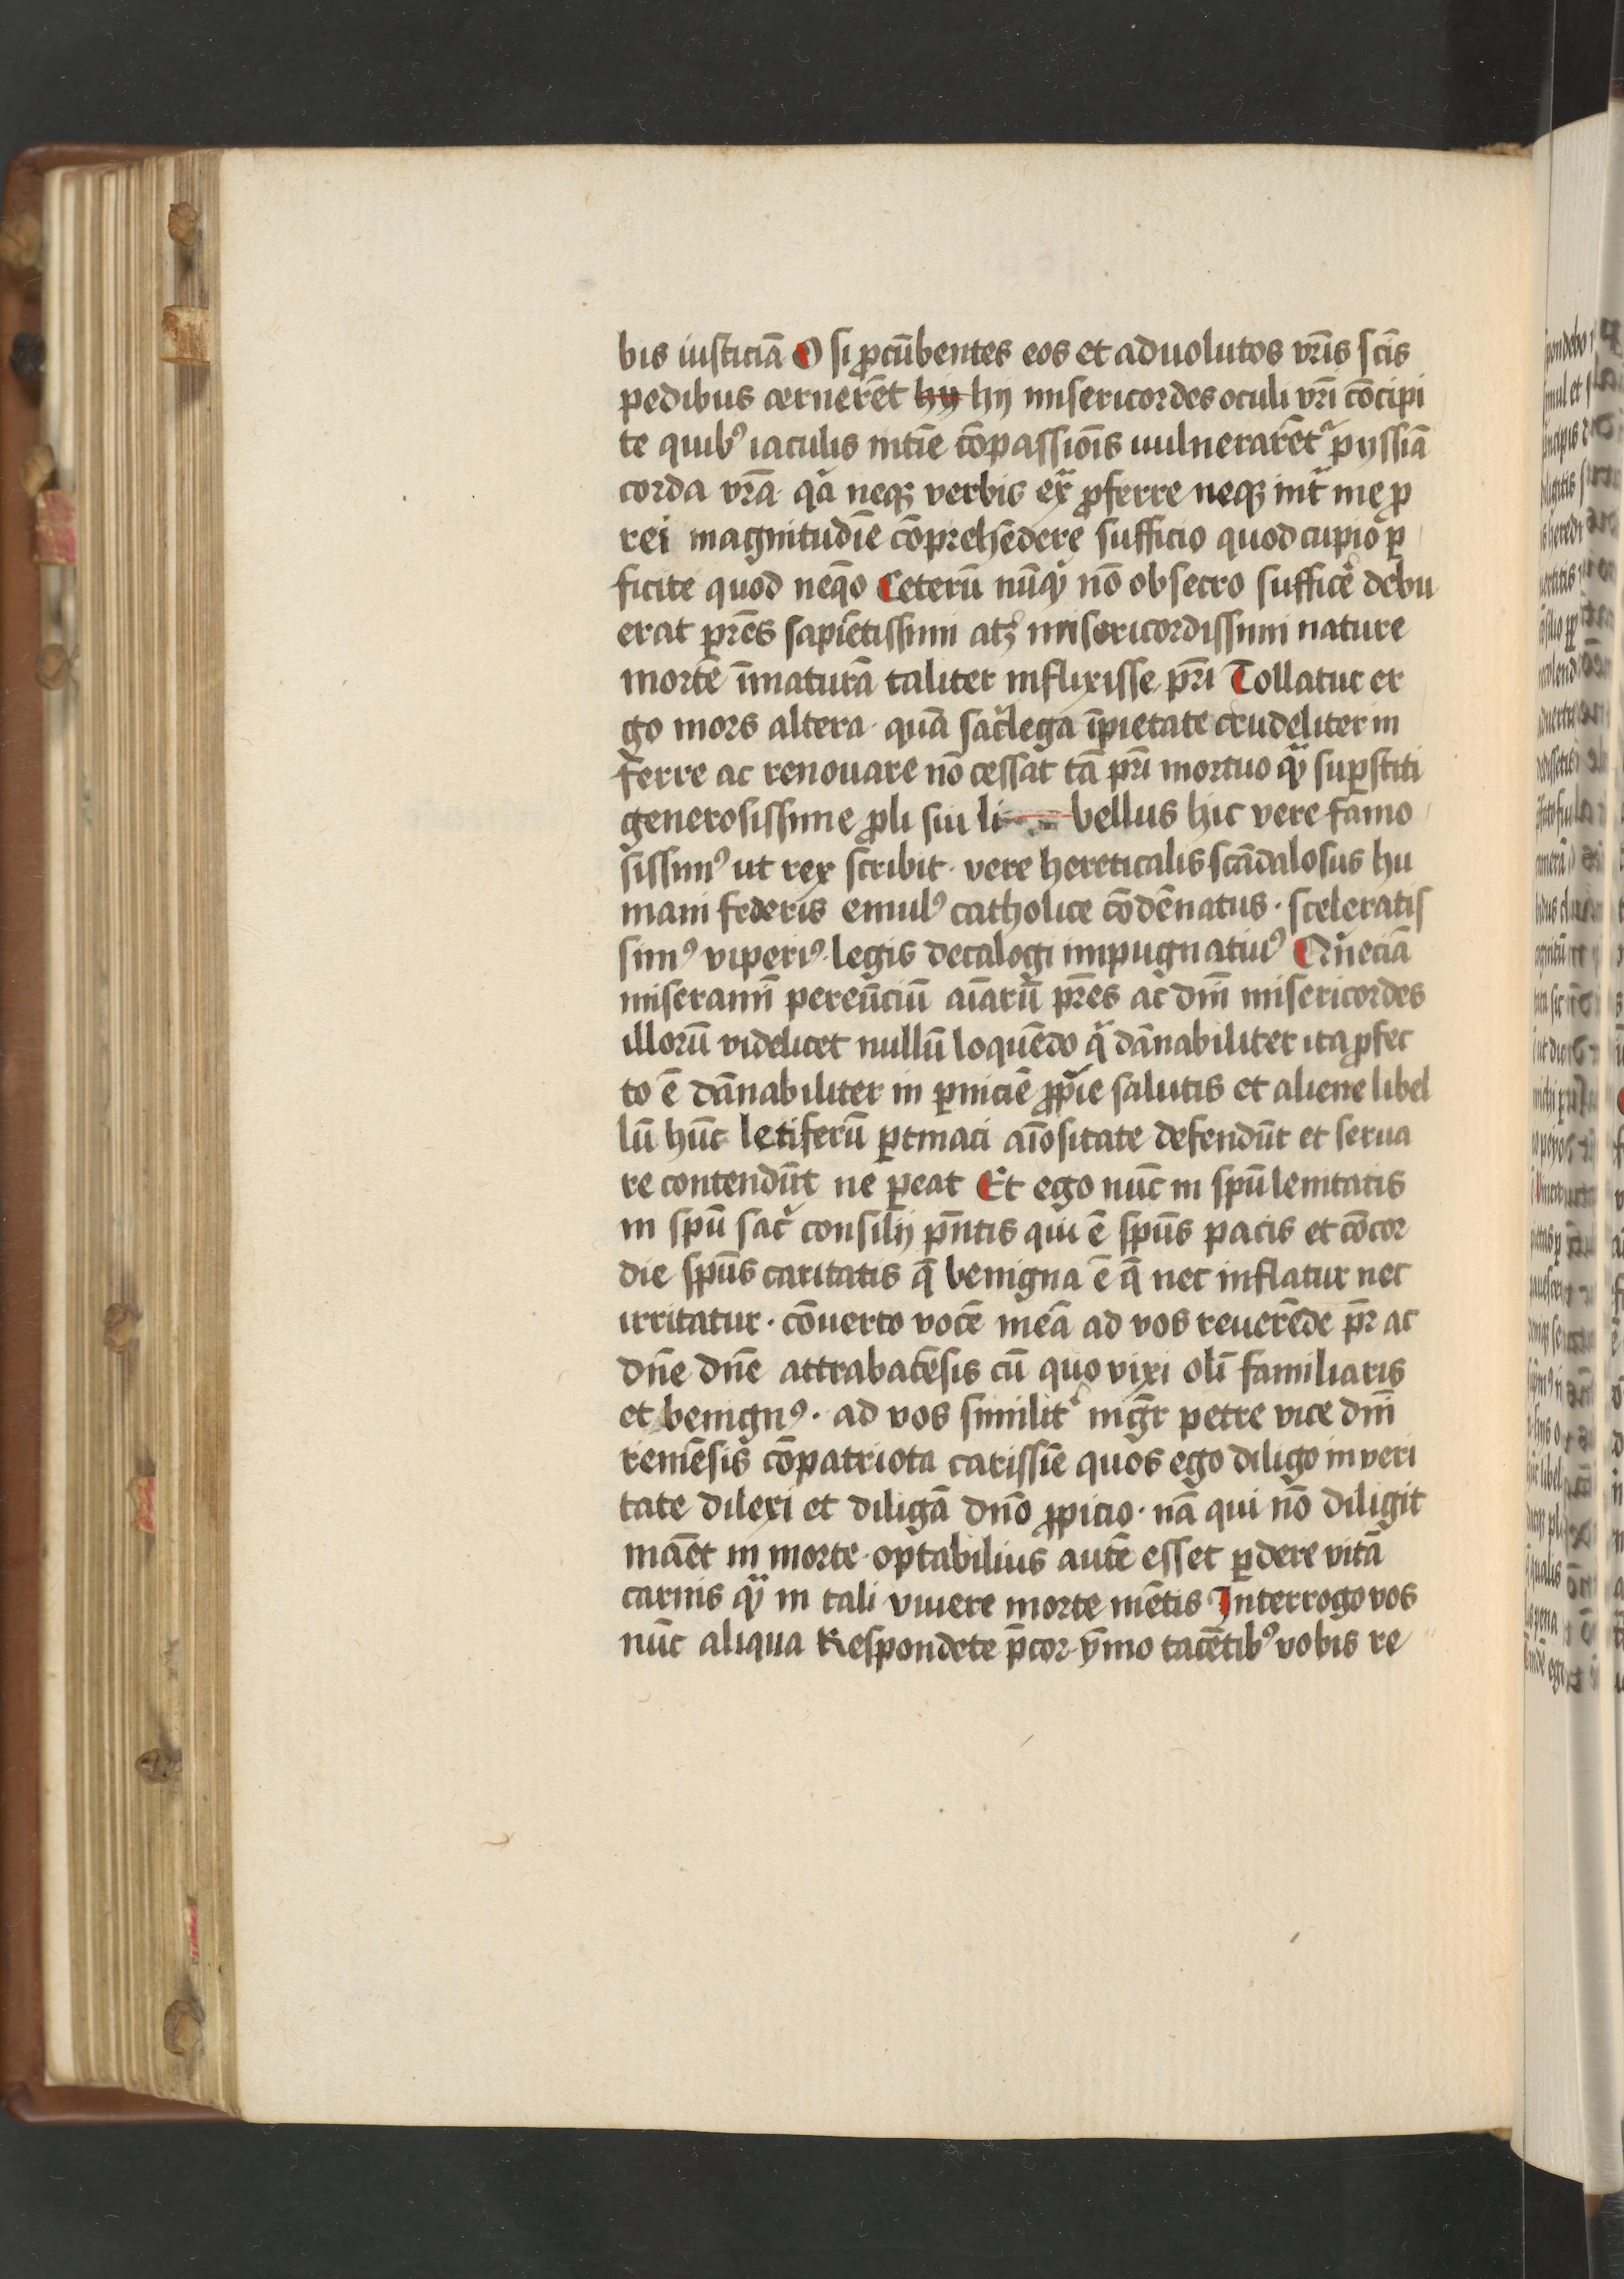 bis iusticiā O si ꝓcūbentes eos et aduolutos vr̄is sc̄is
pedibus cernerēt hy hij misericordes oculi vr̄i cōcipi
te quibꝰ iaculis intīe cōpassiōis uulnerarēt᷑ pijssiā
corda vr̄a qᷓa neqꝫ verbis ex ꝓferre neqꝫ int᷑ me ꝓ
rei magnitudīe cōprehēdere sufficio quod cupio ꝑ
ficite quod neq̄o Ceterū nūqᷓ nō obsecro sufficē debu
erat pr̄es sapiētissimi atꝫ misericordissimi nature
mortē īmaturā taliter inflixisse pr̄i Tollatur er
go mors altera quā sac̓lega īpietate crudeliter in
ferre ac renouare nō cessat tā pr̄i mortuo qᷓ suꝑstiti
generosissime ꝓli sui li bellus hic vere famo
sissimꝰ ut rex scribit · vere hereticalis scādalosus hu
mani federis emulꝰ catholice cōdēnatus · sceleratis
simꝰ viperiꝰ legis decalogi impugnatiuꝰ Qn̄ eciā
miseramī pereūciū aīarū pr̄es ac dn̄i misericordes
illorū videlicet nullū loquēdo qᷓ dānabiliter ita ꝓfec
to ē dānabiliter in ꝑniciē ꝓp̄ie salutis et aliene libel
lū hūc letiferū ꝑtinaci aīositate defendūt et serua
re contendūt ne ꝑeat Et ego nūc in sp̄u lenitatis
in sp̄u sac̓ consilij pn̄tis qui ē sp̄us pacis et cōcor
die sp̄us caritatis q̄ benigna ē q̄ nec inflatur nec
irritatur · cōuerto vocē meā ad vos reuerēde pr̄ ac
dn̄e dn̄e attrabatēsis cū quo vixi olī familiaris
et benignꝰ · ad vos similit᷑ mgr̄ petre vice dn̄i
remēsis cōpatriota carissīe quos ego diligo in veri
tate dilexi et diligā dn̄o ꝓpicio · nā qui nō diligit
manēt in morte · optabilius autē esset ꝑdere vitā
carnis qᷓ in tali viuere morte mētis Interrogo vos
nūc aliqua Respondete p̄cor ymo tacētibꝰ vobis re